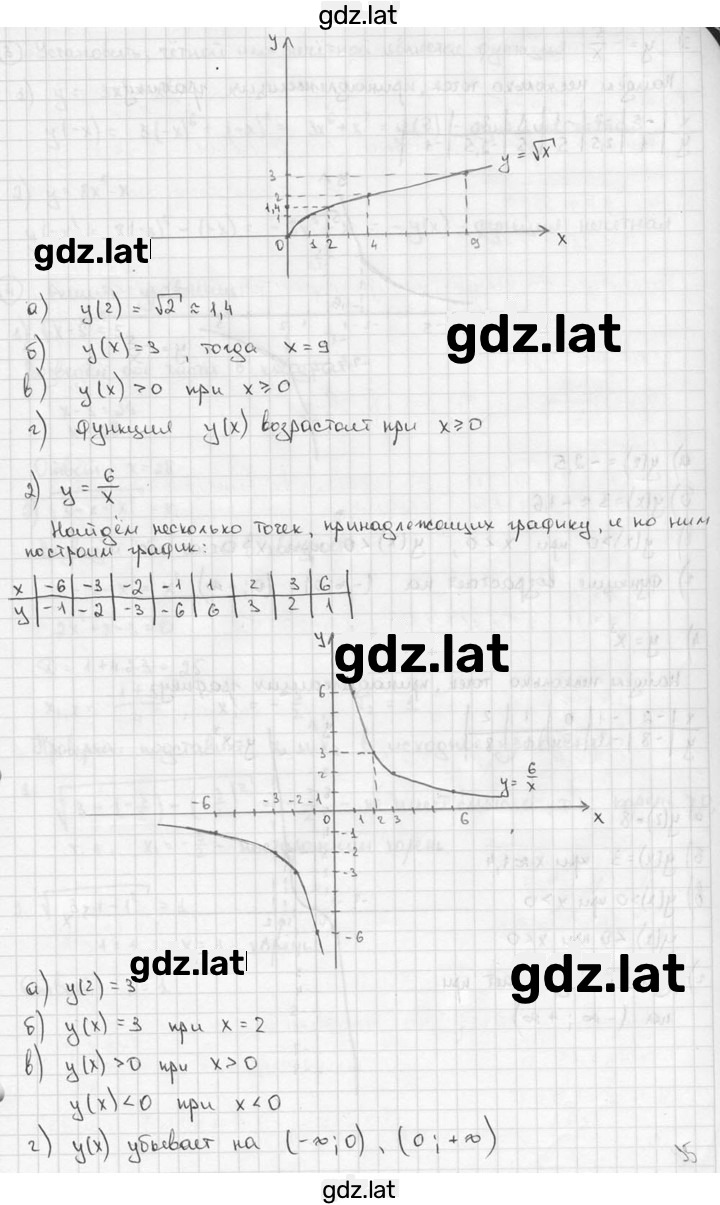 gdz.lat
y
y = √x
3
2
1,4
1
0 1 2 4 9 x
gdz.lat
а) y(2) = √2 ≈ 1,4
gdz.lat
б) y(x) = 3, тогда x = 9
в) y(x) > 0 при x ≥ 0
г) Функция y(x) возрастает при x ≥ 0
2) y = 6/x
Найдём несколько точек, принадлежащих графику, и по ним
построим график:
x | -6 | -3 | -2 | -1 | 1 | 2 | 3 | 6 |
y | -1 | -2 | -3 | -6 | 6 | 3 | 2 | 1 |
y
gdz.lat
6
3
2
y = 6/x
-6 -3 -2 -1 0 1 2 3 6 x
-1
-2
-3
-6
gdz.lat
gdz.lat
а) y(2) = 3
б) y(x) = 3 при x = 2
в) y(x) > 0 при x > 0
y(x) < 0 при x < 0
г) y(x) убывает на (-∞; 0), (0; +∞)
35
gdz.lat